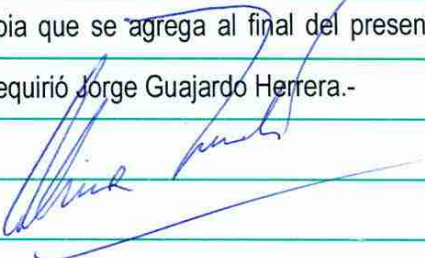 pia que se agrega al final del presen
equirió Jorge Guajardo Herrera.-